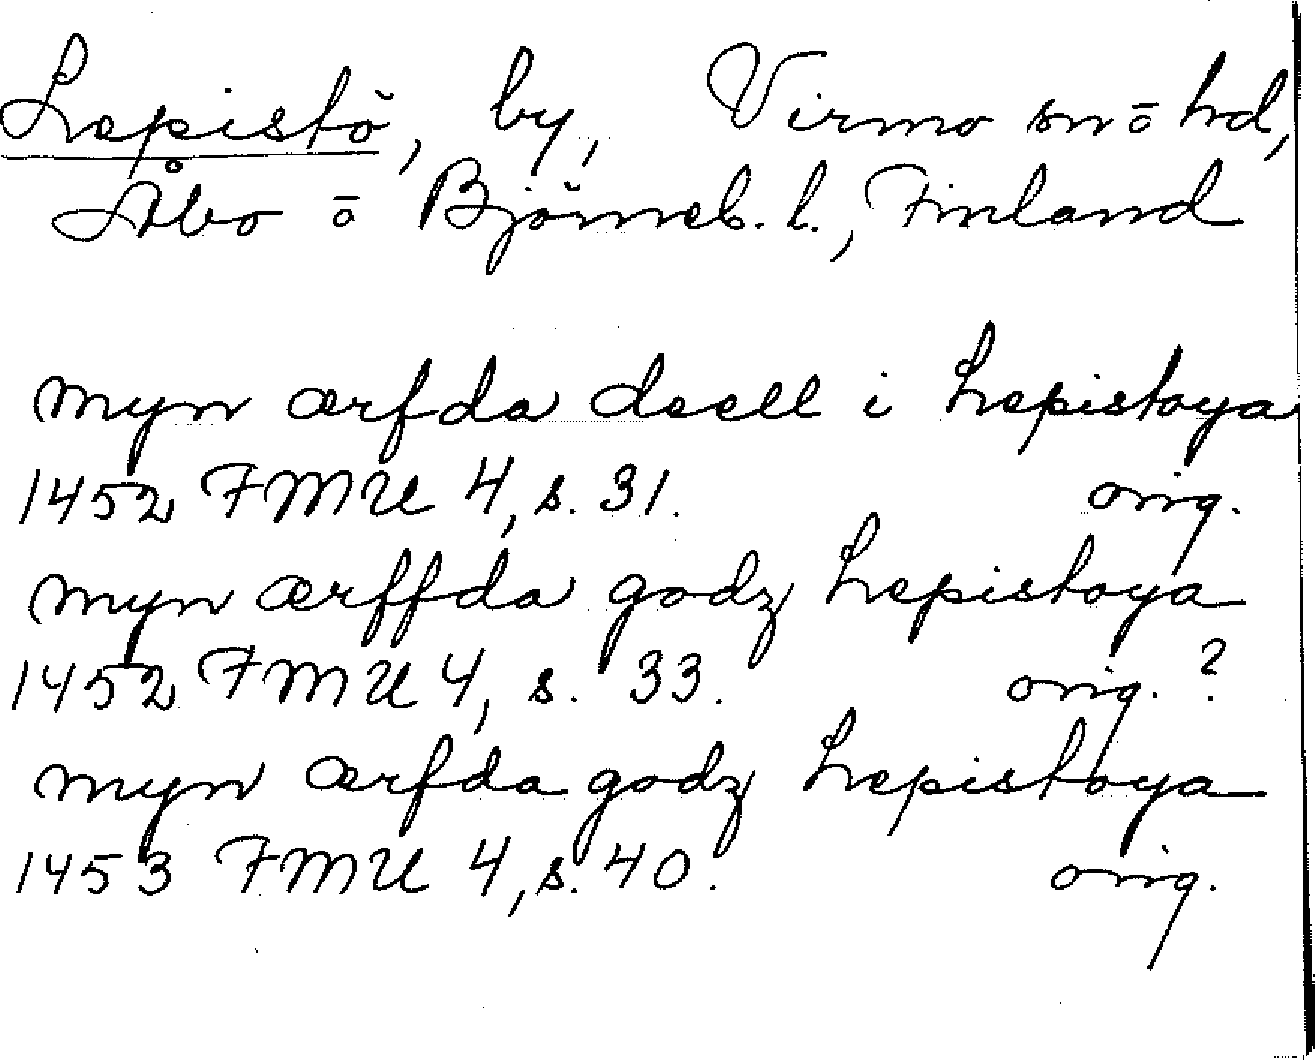 Lepistö, by, Virmo sn o hd,
Åbo o Björneb. l., Finland
myn ærfda deell i Lepistoya
1452 FMU 4, s. 31. orig.
myn ærffda godz Lepistoya
1452 FMU 4, s. 33. orig. ?
myn ærfda godz Lepistoya
1453 FMU 4, s. 40. orig.